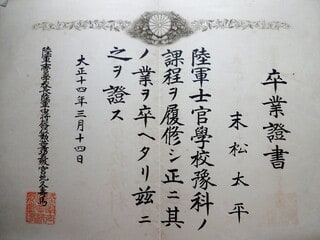 卒業證書
末松太平
陸軍士官學校豫科ノ
課程ヲ履修シ正ニ其
ノ業ヲ卒ヘタリ玆ニ
之ヲ證ス
大正十四年三月十四日